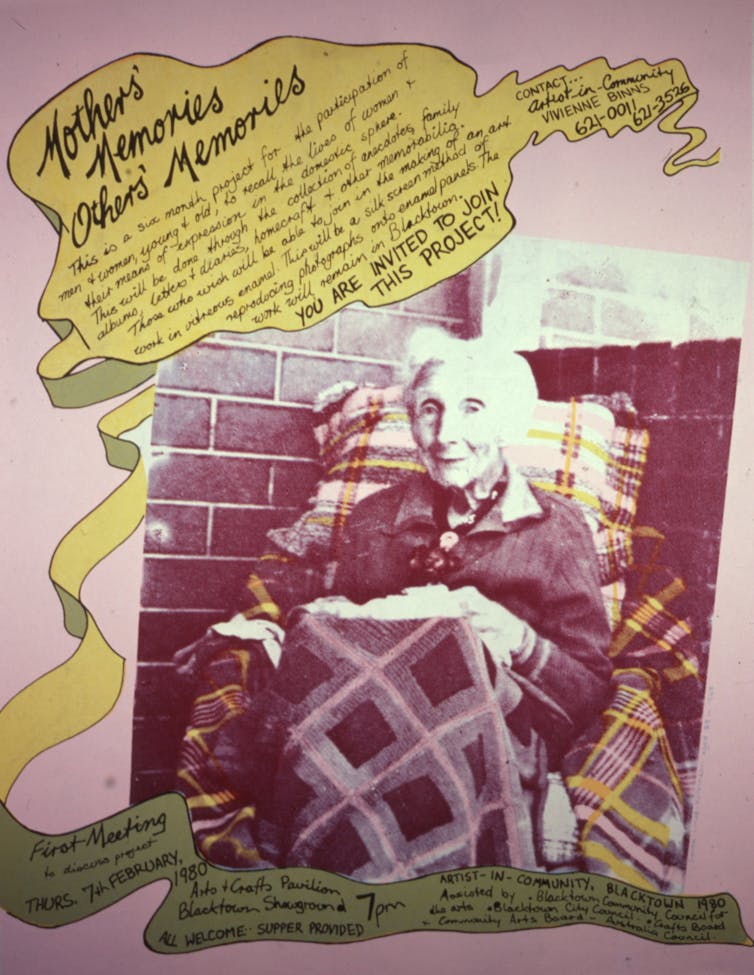 Mothers'
Memories
Others' Memories
This is a six month project for the participation of
men & women, young & old, to recall the lives of women &
their means of expression in the domestic sphere.
This will be done through the collection of anecdotes, family
albums, letters & diaries, homecraft & other memorabilia.
Those who wish will be able to join in the making of an art
work in vitreous enamel. This will be a silk screen method of
reproducing photographs onto enamel panels. The
work will remain in Blacktown.
YOU ARE INVITED TO JOIN
THIS PROJECT!
CONTACT...
artist-in-Community
VIVIENNE BINNS
621-0011
621-3526
First Meeting
to discuss project
THURS. 7th FEBRUARY,
1980
Arts & Crafts Pavilion
Blacktown Showground 7pm
ALL WELCOME·· SUPPER PROVIDED
ARTIST-IN-COMMUNITY, BLACKTOWN 1980
Assisted by • Blacktown Community Council for
the arts • Blacktown City Council • Crafts Board
& Community Arts Board - Australia Council.